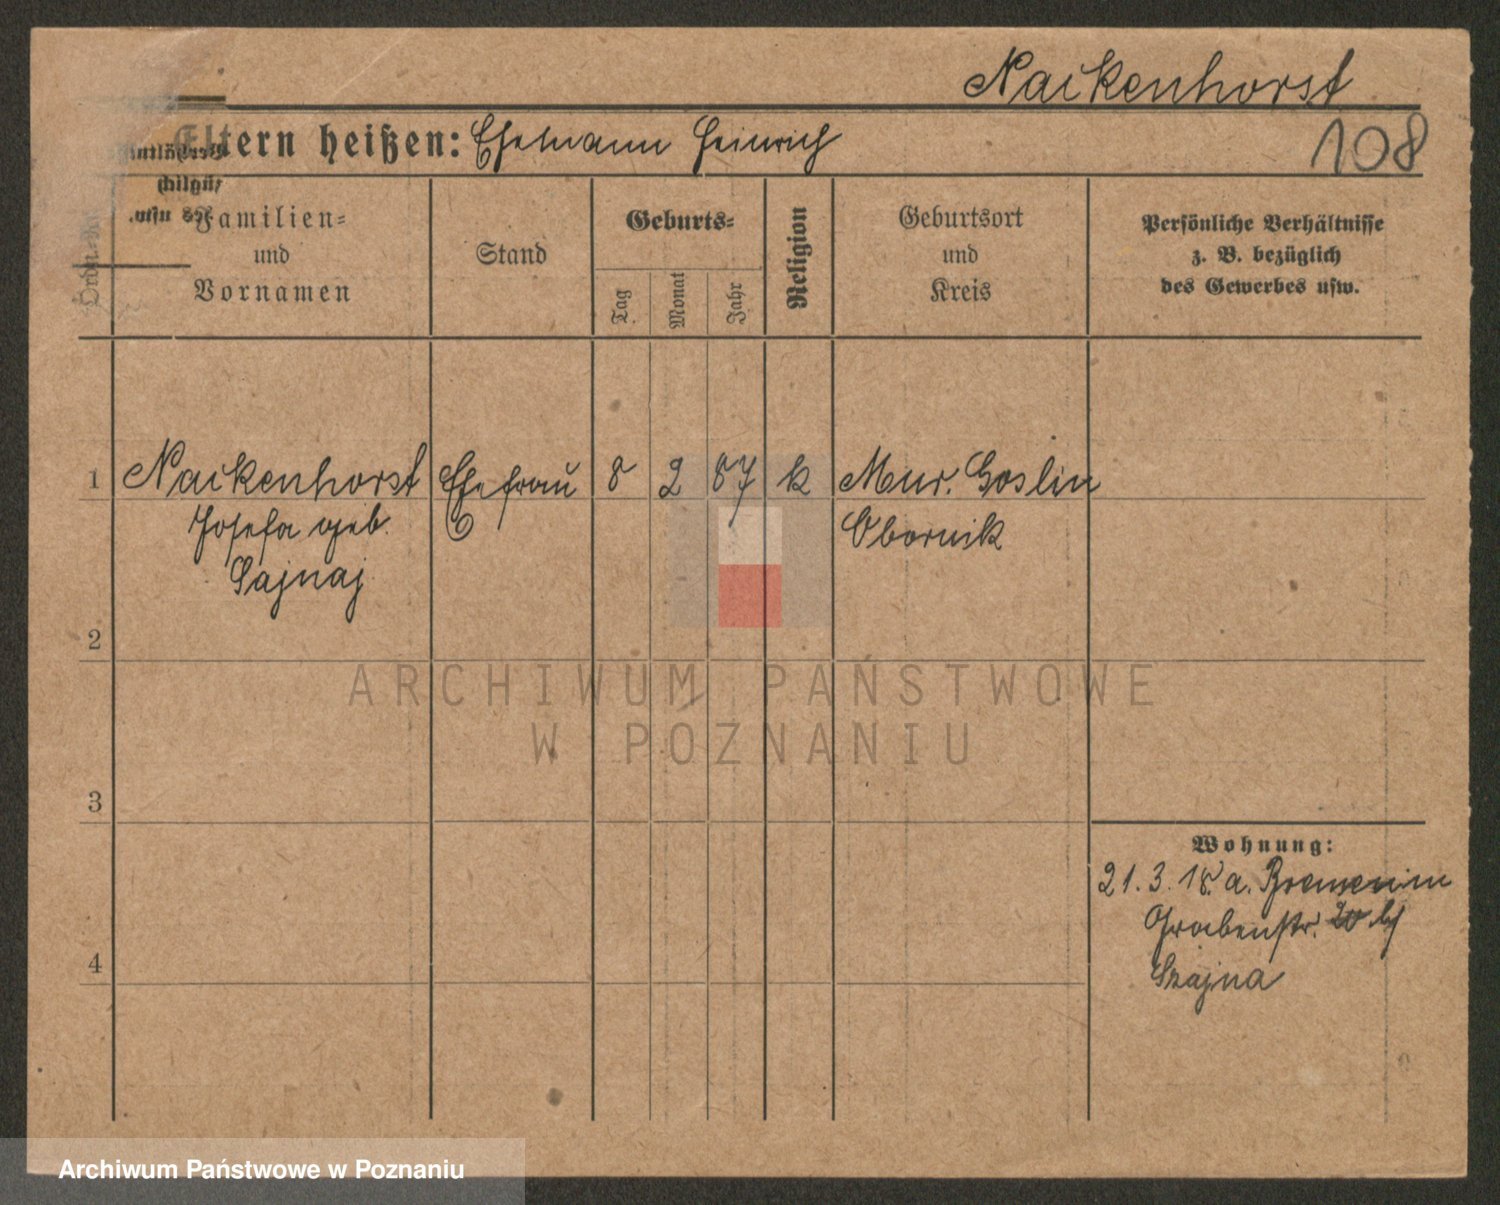 Nackenhorst
Eltern heißen: Ehemann Heinrich
108
Ordn.-Nr.
Familien-
und
Vornamen
Stand
Geburts-
Tag
Monat
Jahr
Religion
Geburtsort
und
Kreis
Persönliche Verhältnisse
z. B. bezüglich
des Gewerbes usw.
1 Nackenhorst Ehefrau 8 2 87 k Mur. Goslin
Josefa geb. Obornik
Sajnaj
2
3
4
Wohnung:
21.3.18. a. Bremen in
Grabenstr. 20 bj
Szajna
ARCHIWUM PAŃSTWOWE
W POZNANIU
Archiwum Państwowe w Poznaniu